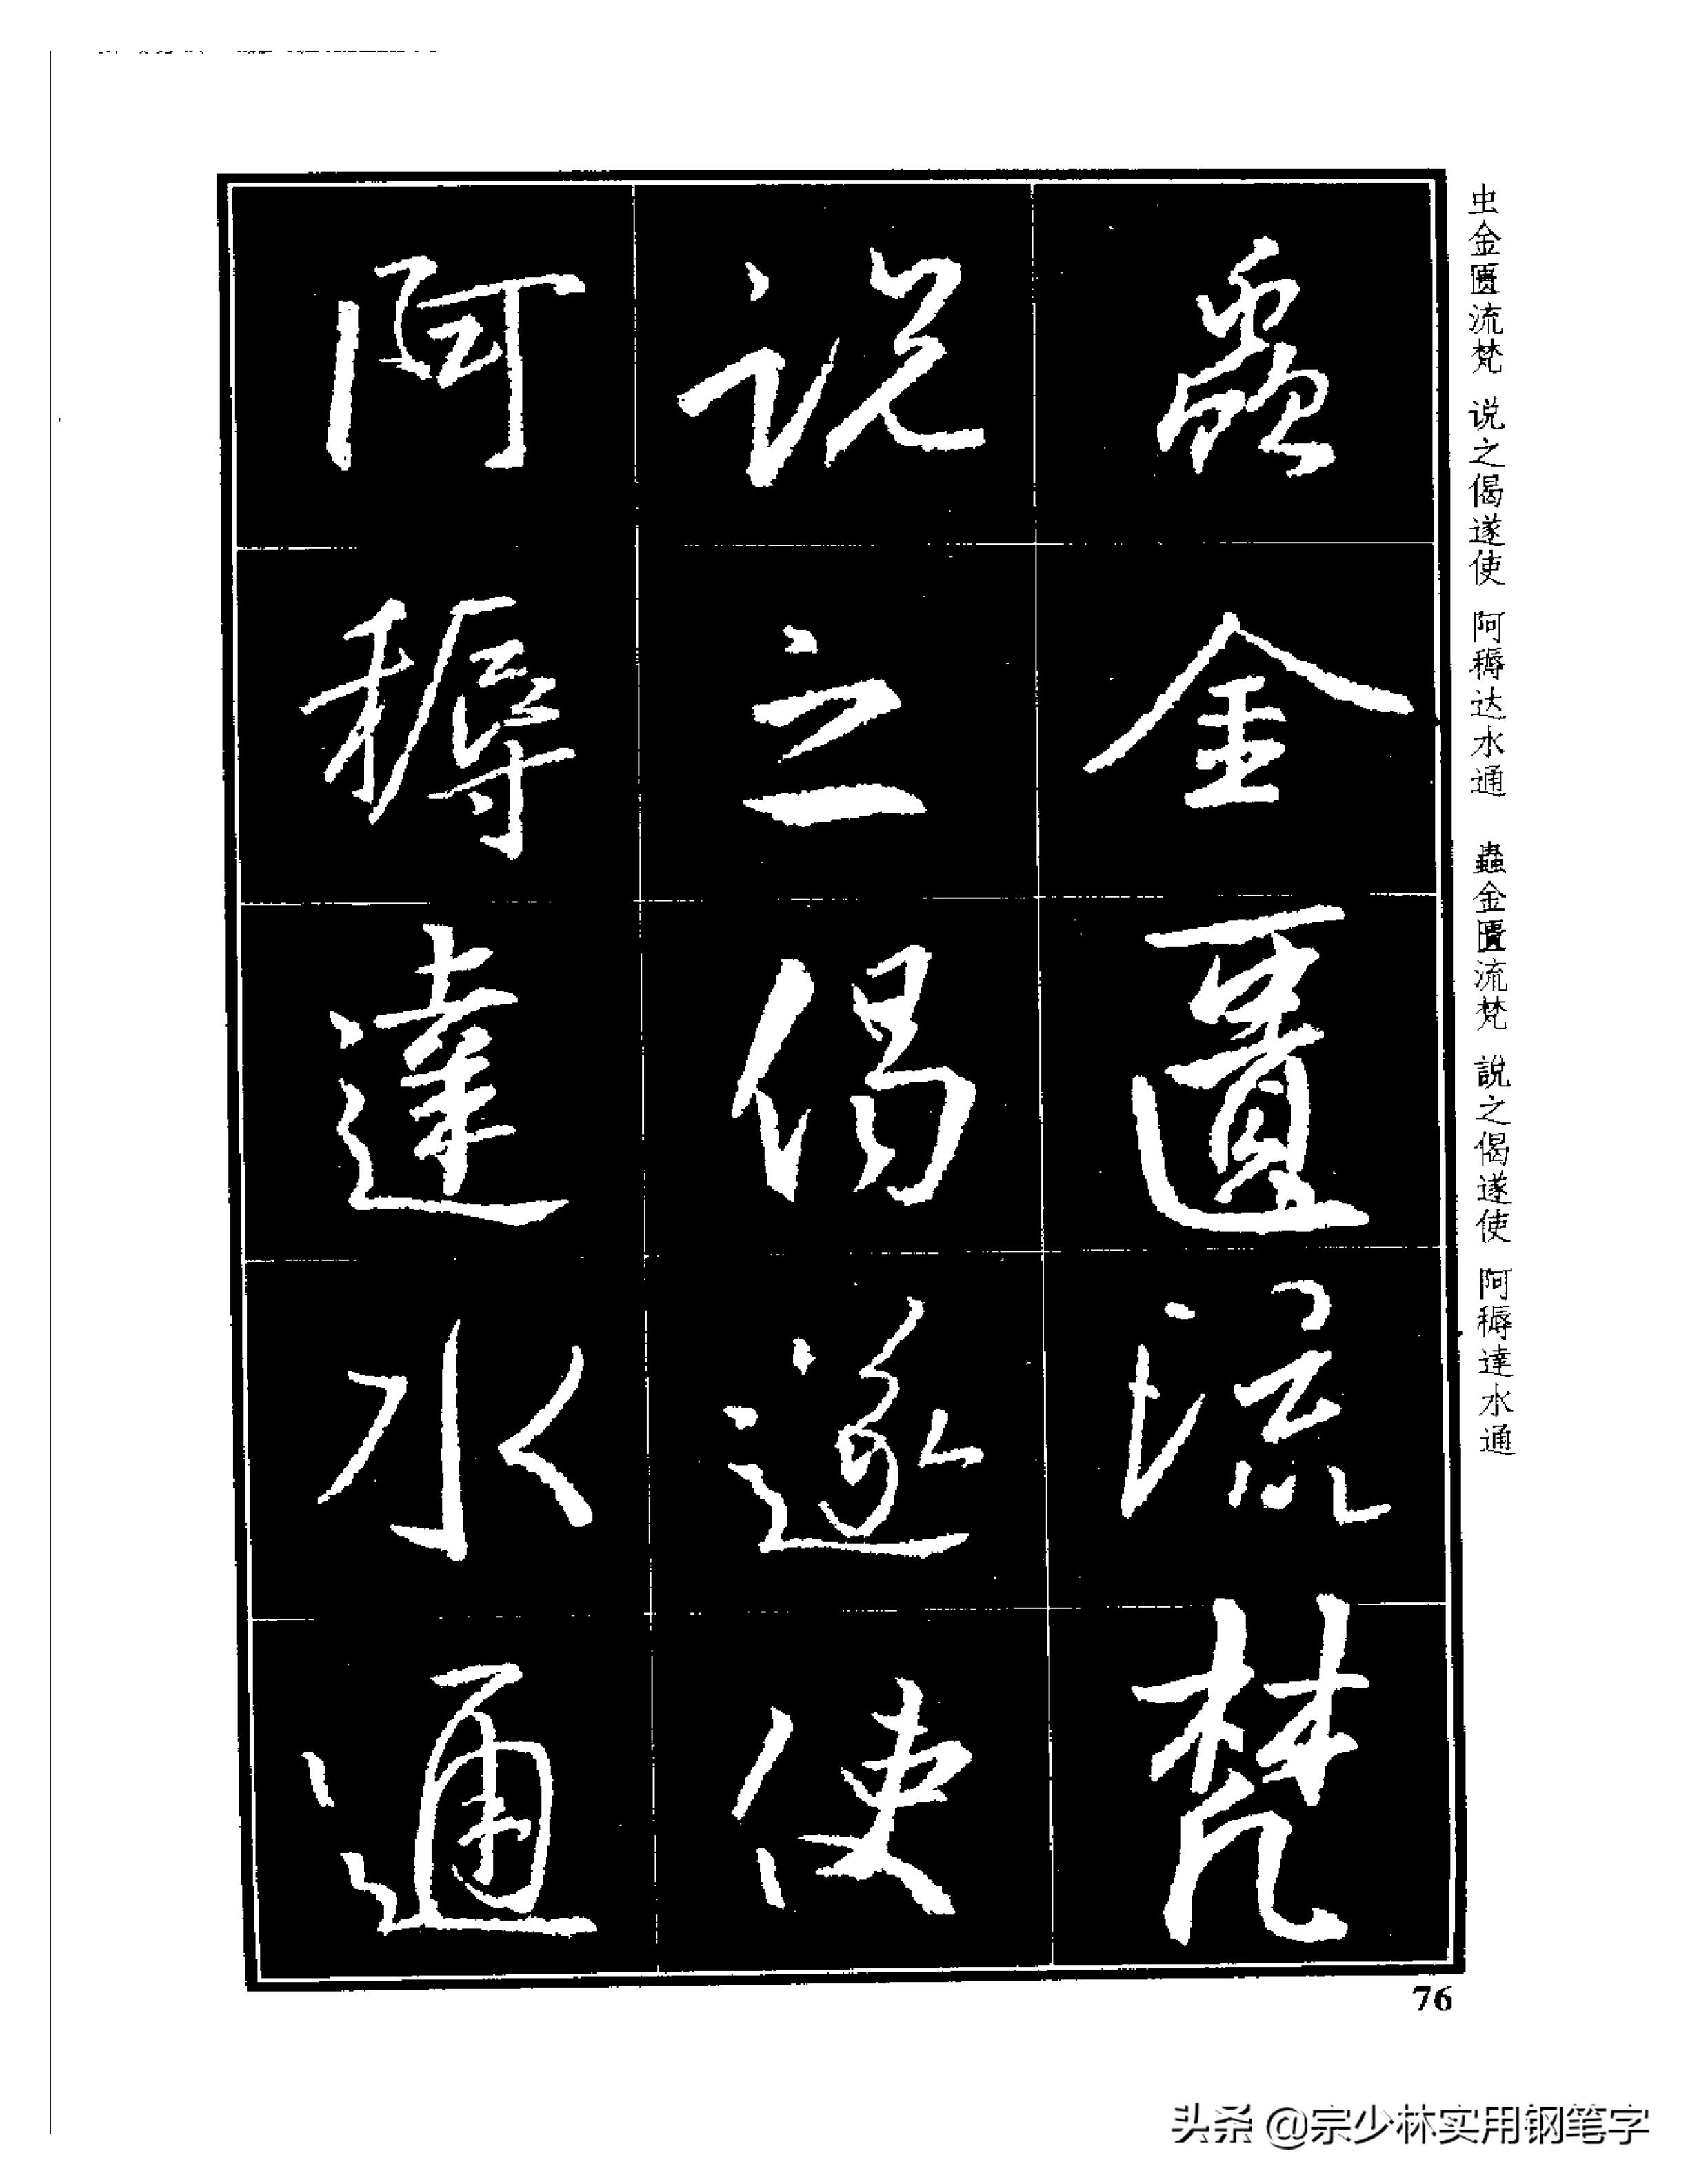 蟲金匱流梵
說之偈遂使
阿耨達水通
虫金匮流梵 说之偈遂使 阿耨达水通 蟲金匱流梵 說之偈遂使 阿耨達水通
76
头条 @宗少林实用钢笔字